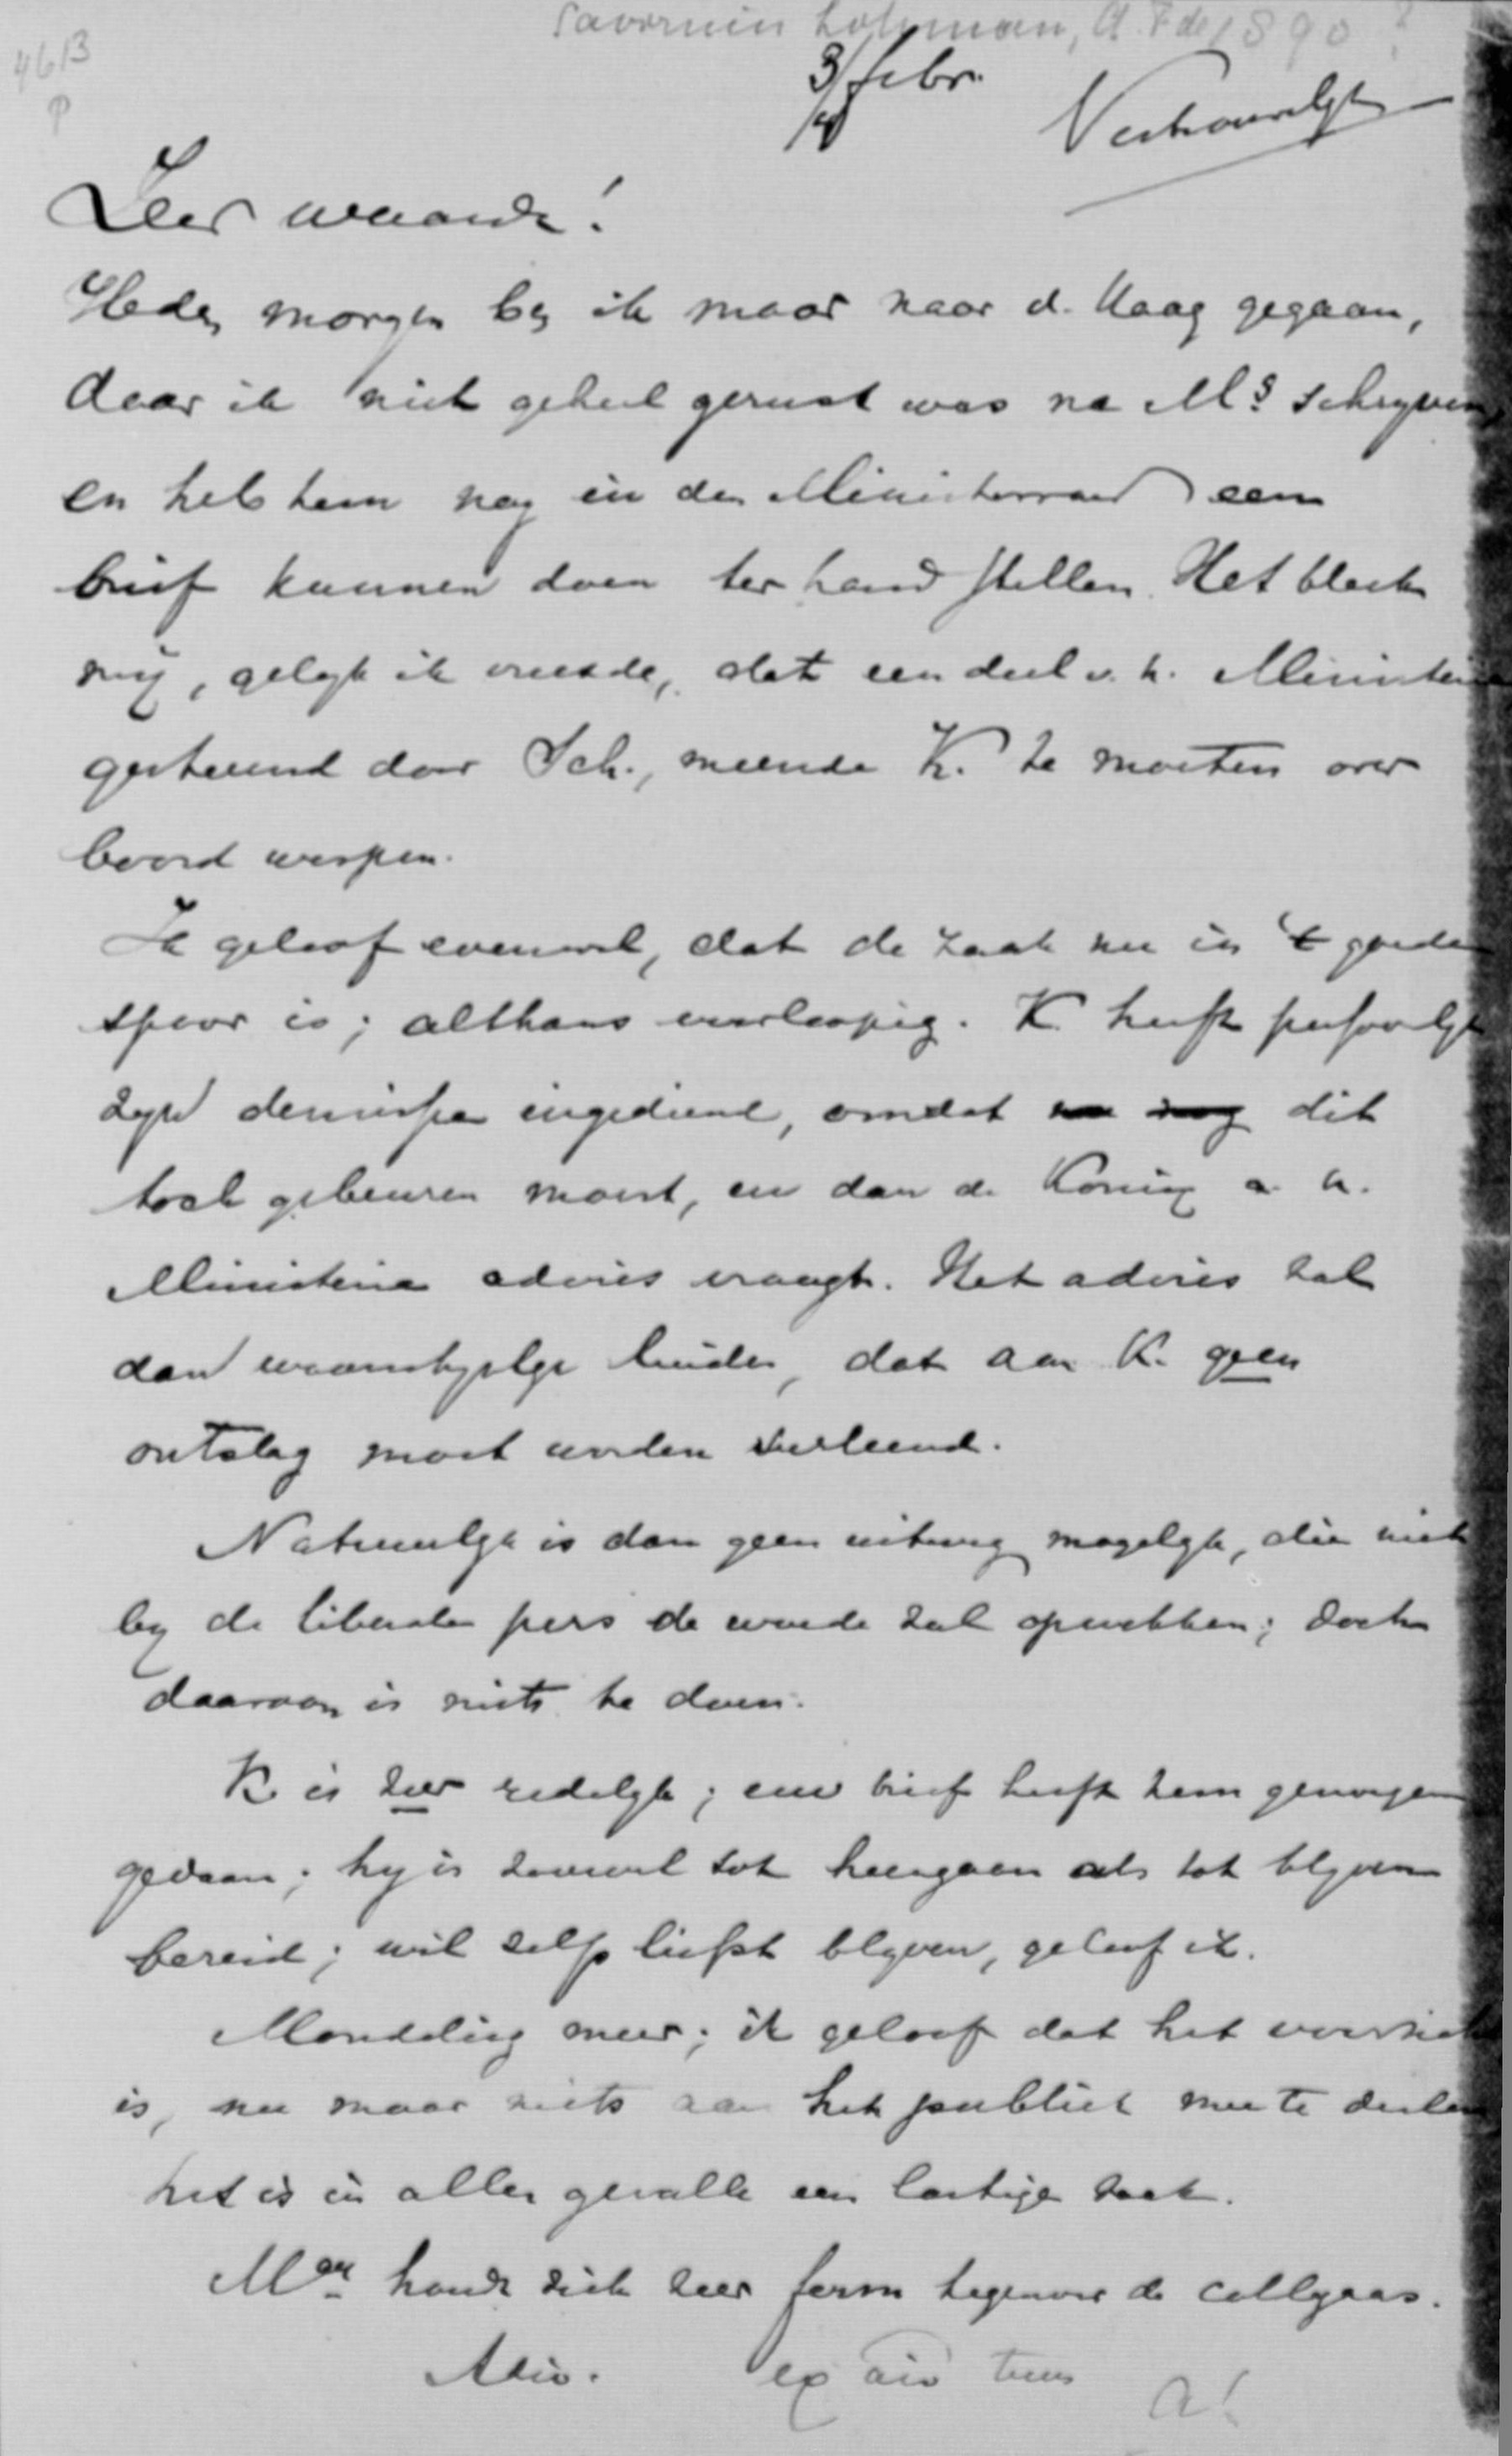 Savornin Lohman, A. F. de 1890?
46B
P
3/4 febr.
Vertrouwelyk
Zeer waarde!
Heden morgen ben ik maar naar d. Haag gegaan,
daar ik niet geheel gerust was na M's schryven,
en heb hem nog in den Ministerraad een
brief kunnen doen ter hand stellen. Het bleek
mij, gelyk ik vreesde, dat een deel v. h. Ministerie
gesteund door Sch., meende K. te moeten over
boord werpen.
Ik geloof evenwel, dat de zaak nu in 't goede
spoor is; althans voorloopig. K. heeft
zyn demissie ingediend, omdat dit
toch gebeuren moest, en dan de Koning a. h.
Ministerie advies vraagt. Het advies zal
dan waarschynlyk luiden, dat aan K. geen
ontslag moet worden verleend.
Natuurlyk is dan geen uitweg mogelyk, die niet
by de liberale pers de woede zal opwekken; doch
daaraan is niets te doen.
K. is zeer redelyk; uw brief heeft hem genoegen
gedaan; hy is zoowel tot heengaan als tot blyven
bereid; wil zelfs liefst blyven, geloof ik.
Mondeling meer; ik geloof dat het
is, nu maar niets aan het publiek mee te deelen
het is in allen gevalle een lastige zaak.
M houdt zich zeer ferm tegenover de collegaas.
Adio. tuus